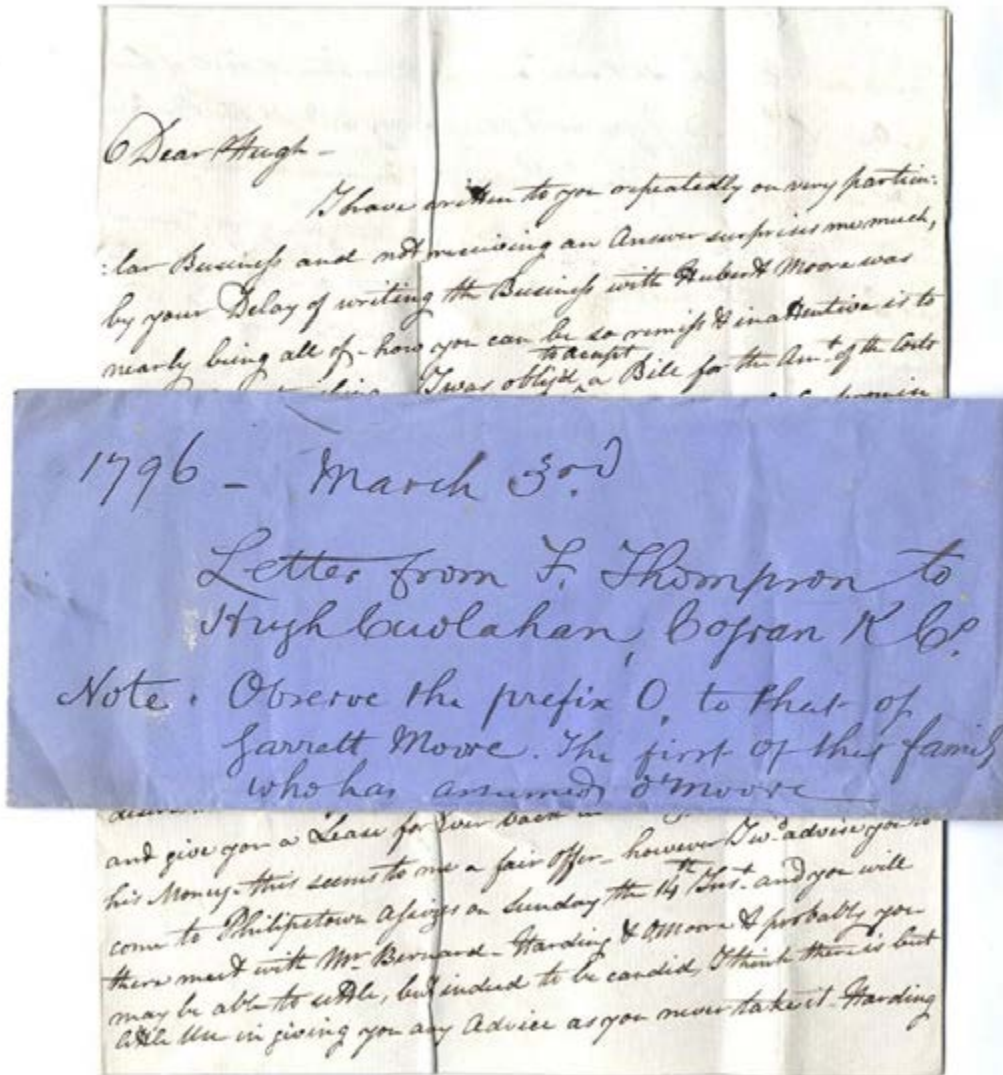 Dear Hugh -
I have written to you repeatedly on very particu:
:lar Business and not receiving an Answer surprises me much,
by your Delay of writing the Business with Hubert Moore was
nearly being all of - how you can be so remiss & inattentive is to
to accept
I was oblig'd ^ a Bill for the Amt. of the Costs
promise
1796 - March 3rd
Letter from F. Thompson to
Hugh Cuolahan, Cogran K Co.
Note. Observe the prefix O, to that of
Garrett Moore. The first of this family
who has assumed O'Moore
and give you a Lease for Ever back
his Money - this seems to me a fair offer - however I wd. advise you to
come to Philipstown Assizes on Sunday the 14th Inst. and you will
there meet with Mr. Bernard - Harding & OMoore & probably you
may be able to settle, but indeed to be candid, I think there is but
little Use in giving you any Advice as you never take it - Harding